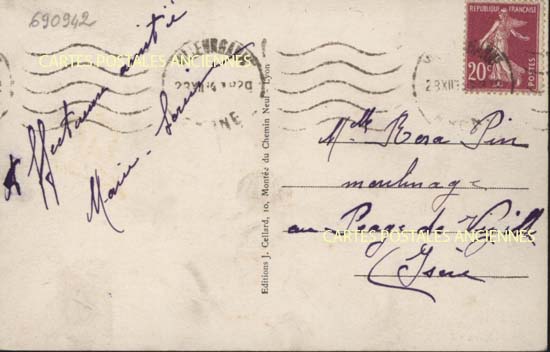 690942
Affectueuse amitié
Marie-Louise
CARTES POSTALES ANCIENNES
Editions J. Cellard, 10, Montée du Chemin Neuf - Lyon
REPUBLIQUE FRANÇAISE
20c
Mlle Rosa Pin
moulinage
au Péage de
CARTES POSTALES ANCIENNES
(Isère